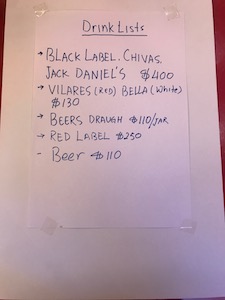 Drink Lists
→ BLACK LABEL. CHIVAS.
JACK DANIEL'S $400
→ VILARES (RED) BELLA (White)
$130
→ BEERS DRAUGH $110/JAR
→ RED LABEL $250
- Beer $110